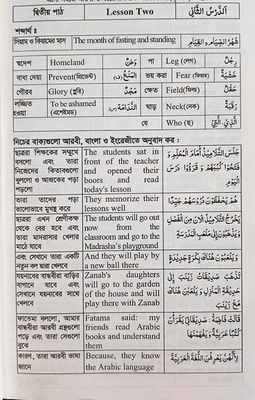 দ্বিতীয় পাঠ Lesson Two اَلدَّرْسُ الثَّانِيْ
শব্দার্থ :
সিয়াম ও কিয়ামের মাস The month of fasting and standing شَهْرُ الصِّيَامِ وَالْقِيَامِ
স্বদেশ Homeland وَطَنٌ পা Leg (লেগ) رِجْلٌ
বাধা দেয়া Prevent(প্রিভেন্ট) ভয় করা Fear (ফিয়ার) خَشْيَةٌ
গৌরব Glory (গ্লরি) مَجْدٌ ক্ষেত Field(ফিল্ড) حَقْلٌ
লজ্জিত হওয়া To be ashamed (এশেইমড) النَّدَامَةُ ঘাড় Neck(নেক) رَقَبَةٌ
যে Who (হু) اَلَّذِيْ، اَلَّتِيْ
নিচের বাক্যগুলো আরবী, বাংলা ও ইংরেজীতে অনুবাদ কর :
ছাত্ররা শিক্ষকের সম্মুখে The students sit in جَلَسَ التَّلَامِيْذُ أَمَامَ الْمُعَلِّمِ
বসলো এবং তারা front of the teacher
নিজেদের কিতাবগুলো and opened their
খুললো ও আজকের পড়া boors and read
পড়লো today's lesson
তারা তাদের পড়া They memorize their
ভালোভাবে মুখস্থ করে lessons well
ছাত্ররা এখন শ্রেণীকক্ষ The students will go out يَخْرُجُ التَّلَامِيْذُ الْآنَ مِنَ الْفَصْلِ
থেকে বের হবে এবং now from the وَيَذْهَبُوْنَ إِلَى مَلْعَبِ الْمَدْرَسَةِ
তারা মাদরাসার খেলার classroom and go to the
মাঠে যাবে Madrasha's playground
এবং সেখানে তারা একটি And they will play by
নতুন বল দ্বারা খেলবে a new ball there
যয়নাবের বান্ধবীরা বাড়ির Zanab's daughters
বাগানে যাবে এবং will go to the garden
সেখানে যয়নাবের সাথে of the house and will
খেলবে play there with Zanab
ফাতেমা বললো, আমার Fatama said: my
বান্ধবীরা আরবী গ্রন্থগুলো friends read Arabic
পড়ে এবং তারা সেগুলো books and understand
বুঝে them
কারণ, তারা আরবী ভাষা Because, they know لِأَنَّهُنَّ يَعْرِفْنَ اللُّغَةَ الْعَرَبِيَّةَ
জানে the Arabic language